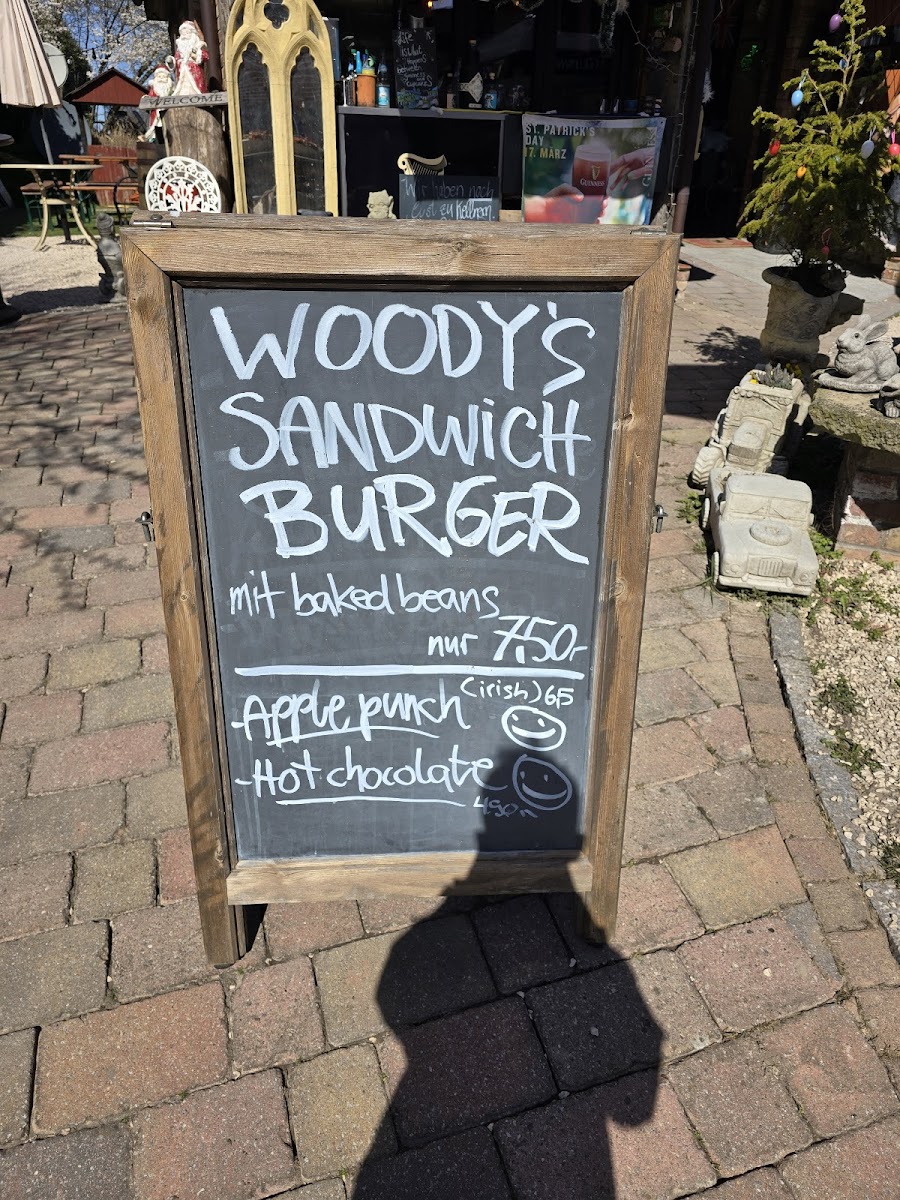 WELCOME
ST. PATRICK'S
DAY
17. MÄRZ
GUINNESS
Wir haben nach
WOODY's
SANDWiCH
BURGER
mit baked beans
nur 7,50
(irish) 6,5
-Apple punch
-Hot chocolate
4,50